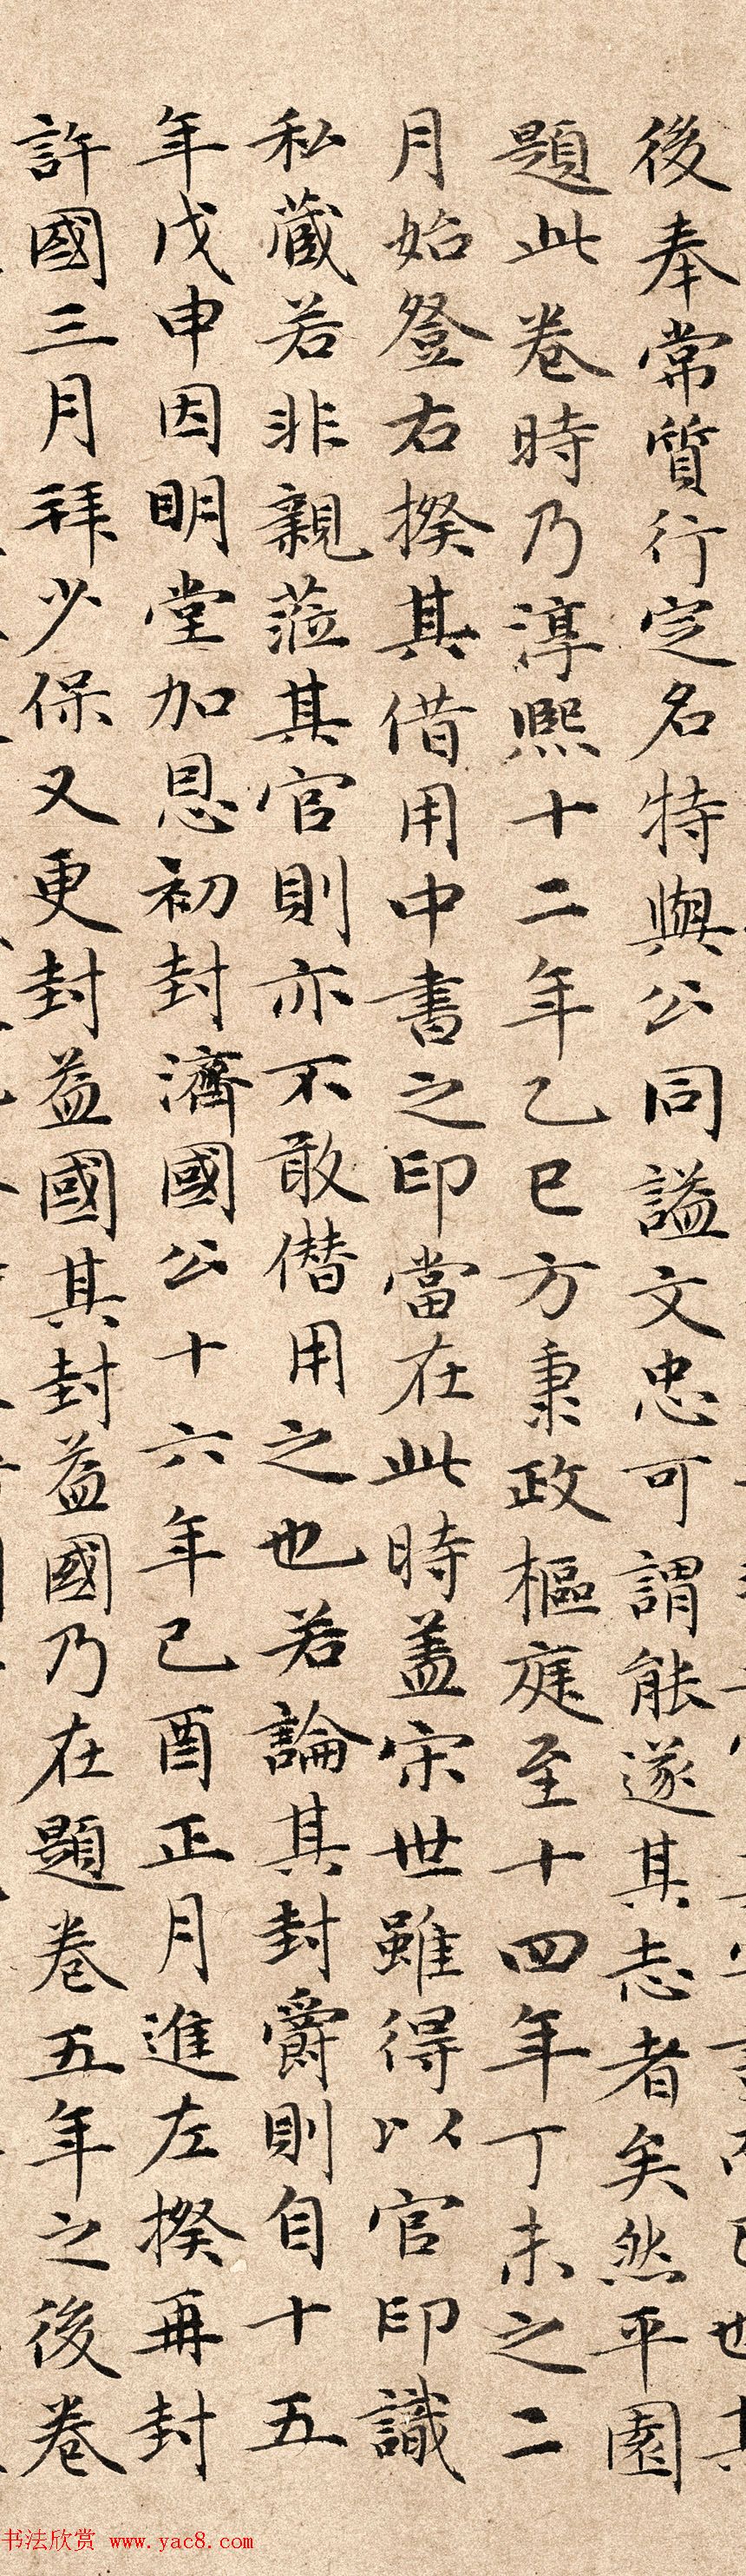 後奉常質行定名特與公同謚文忠可謂能遂其志者矣然平園
題此卷時乃淳熙十二年乙巳方秉政樞庭至十四年丁未之二
月始登右揆其借用中書之印當在此時蓋宋世雖得以官印識
私蔵若非親蒞其官則亦不敢僭用之也若論其封爵則自十五
年戊申因明堂加恩初封濟國公十六年己酉正月進左揆再封
許國三月拜少保又更封益國其封益國乃在題卷五年之後卷
书法欣赏 www.yac8.com